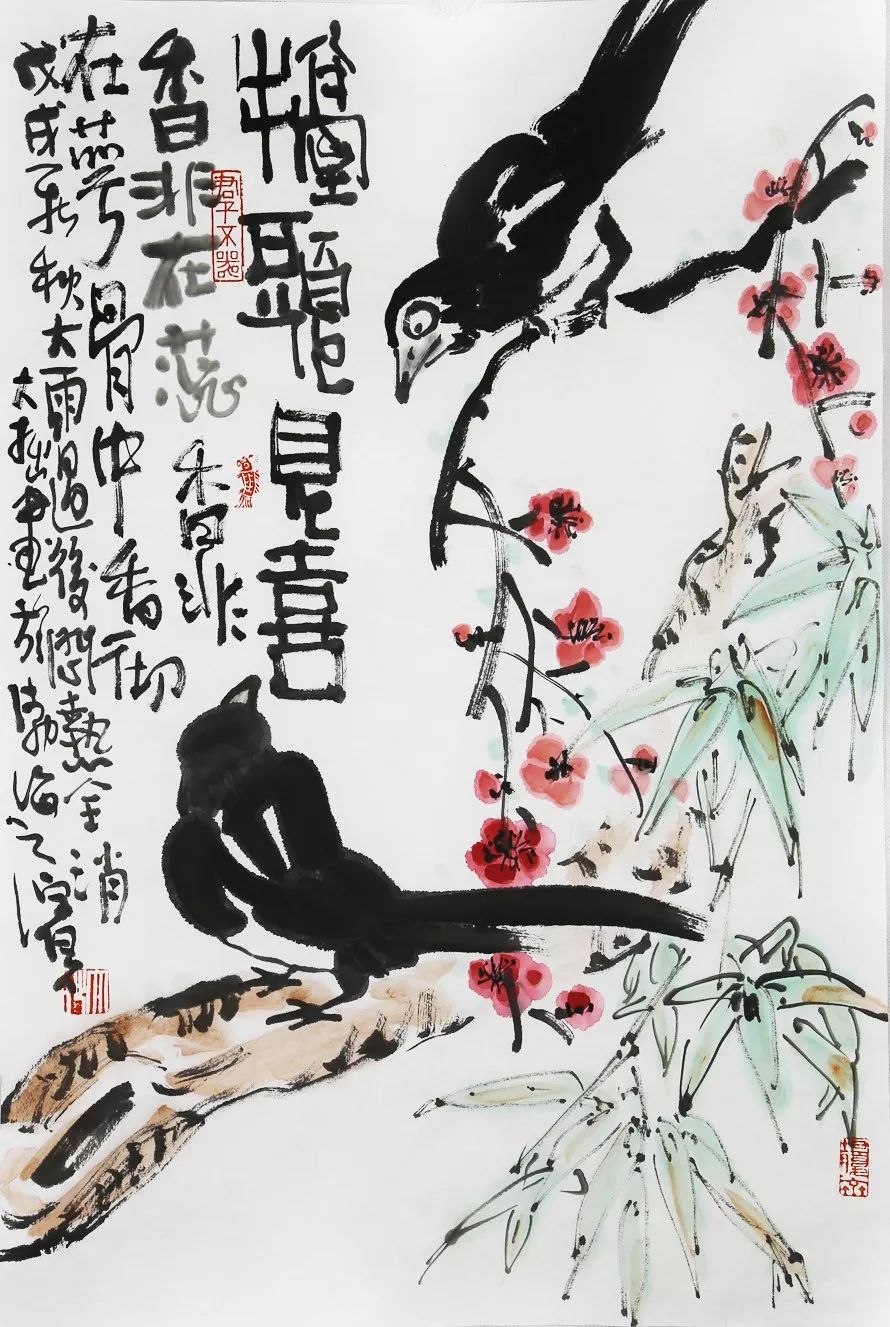 擡頭見喜
香非在蕊香非
在萼骨中香彻
戊戌秋大雨過後熱全消
大拙畫於渤海之濱
君子不器